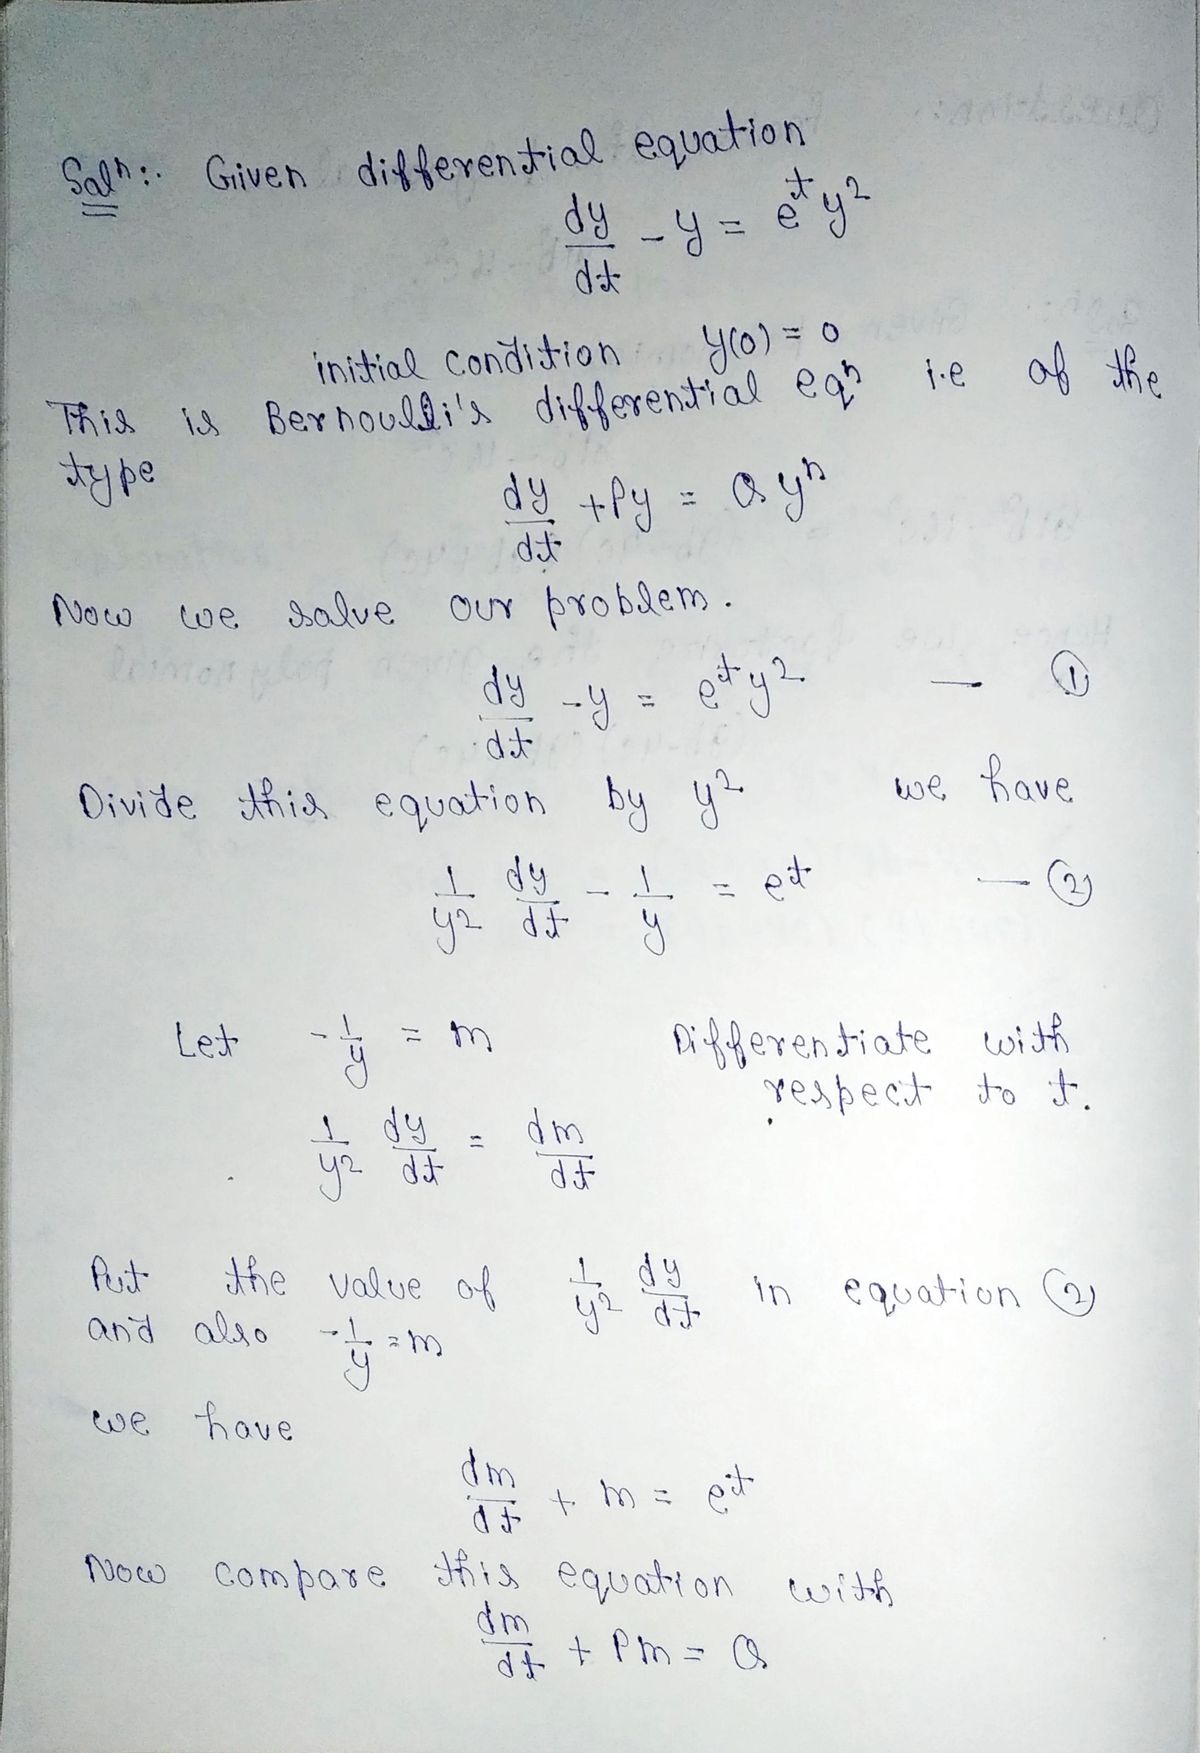 Solⁿ:. Given differential equation
dy/dt - y = e^t y²
initial condition y(0) = 0
This is Bernoulli's differential eqⁿ i.e of the
type
dy/dt + Py = Q yⁿ
Now we solve our problem.
dy/dt - y = e^t y² — ①
Divide this equation by y² we have
1/y² dy/dt - 1/y = e^t — ②
Let -1/y = m Differentiate with
respect to t.
1/y² dy/dt = dm/dt
Put the value of 1/y² dy/dt in equation ②
and also -1/y = m
we have
dm/dt + m = e^t
Now compare this equation with
dm/dt + Pm = Q